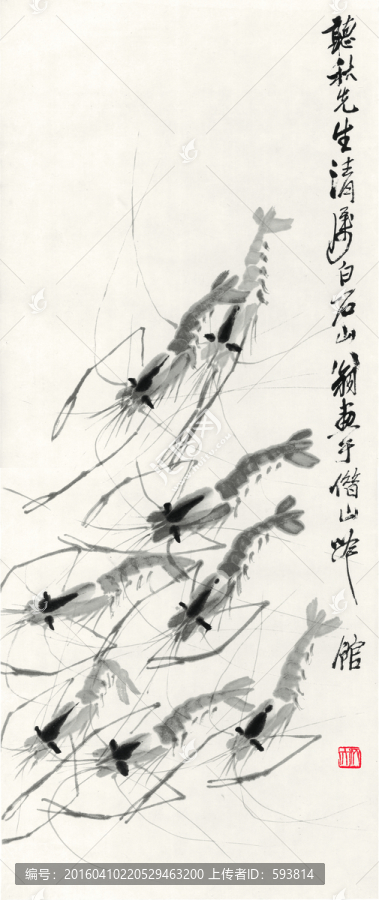 聽秋先生清屬白石山翁畫于借山吟館
编号：20160410220529463200 上传者ID：593814